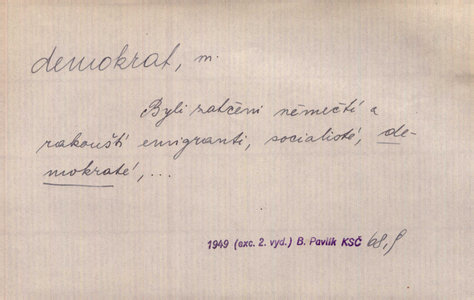 demokrat, m.
Byli zatčeni němečtí a
rakouští emigranti, socialisté, de-
mokraté, ...
1949 (exc. 2. vyd.) B. Pavlík KSČ 68,